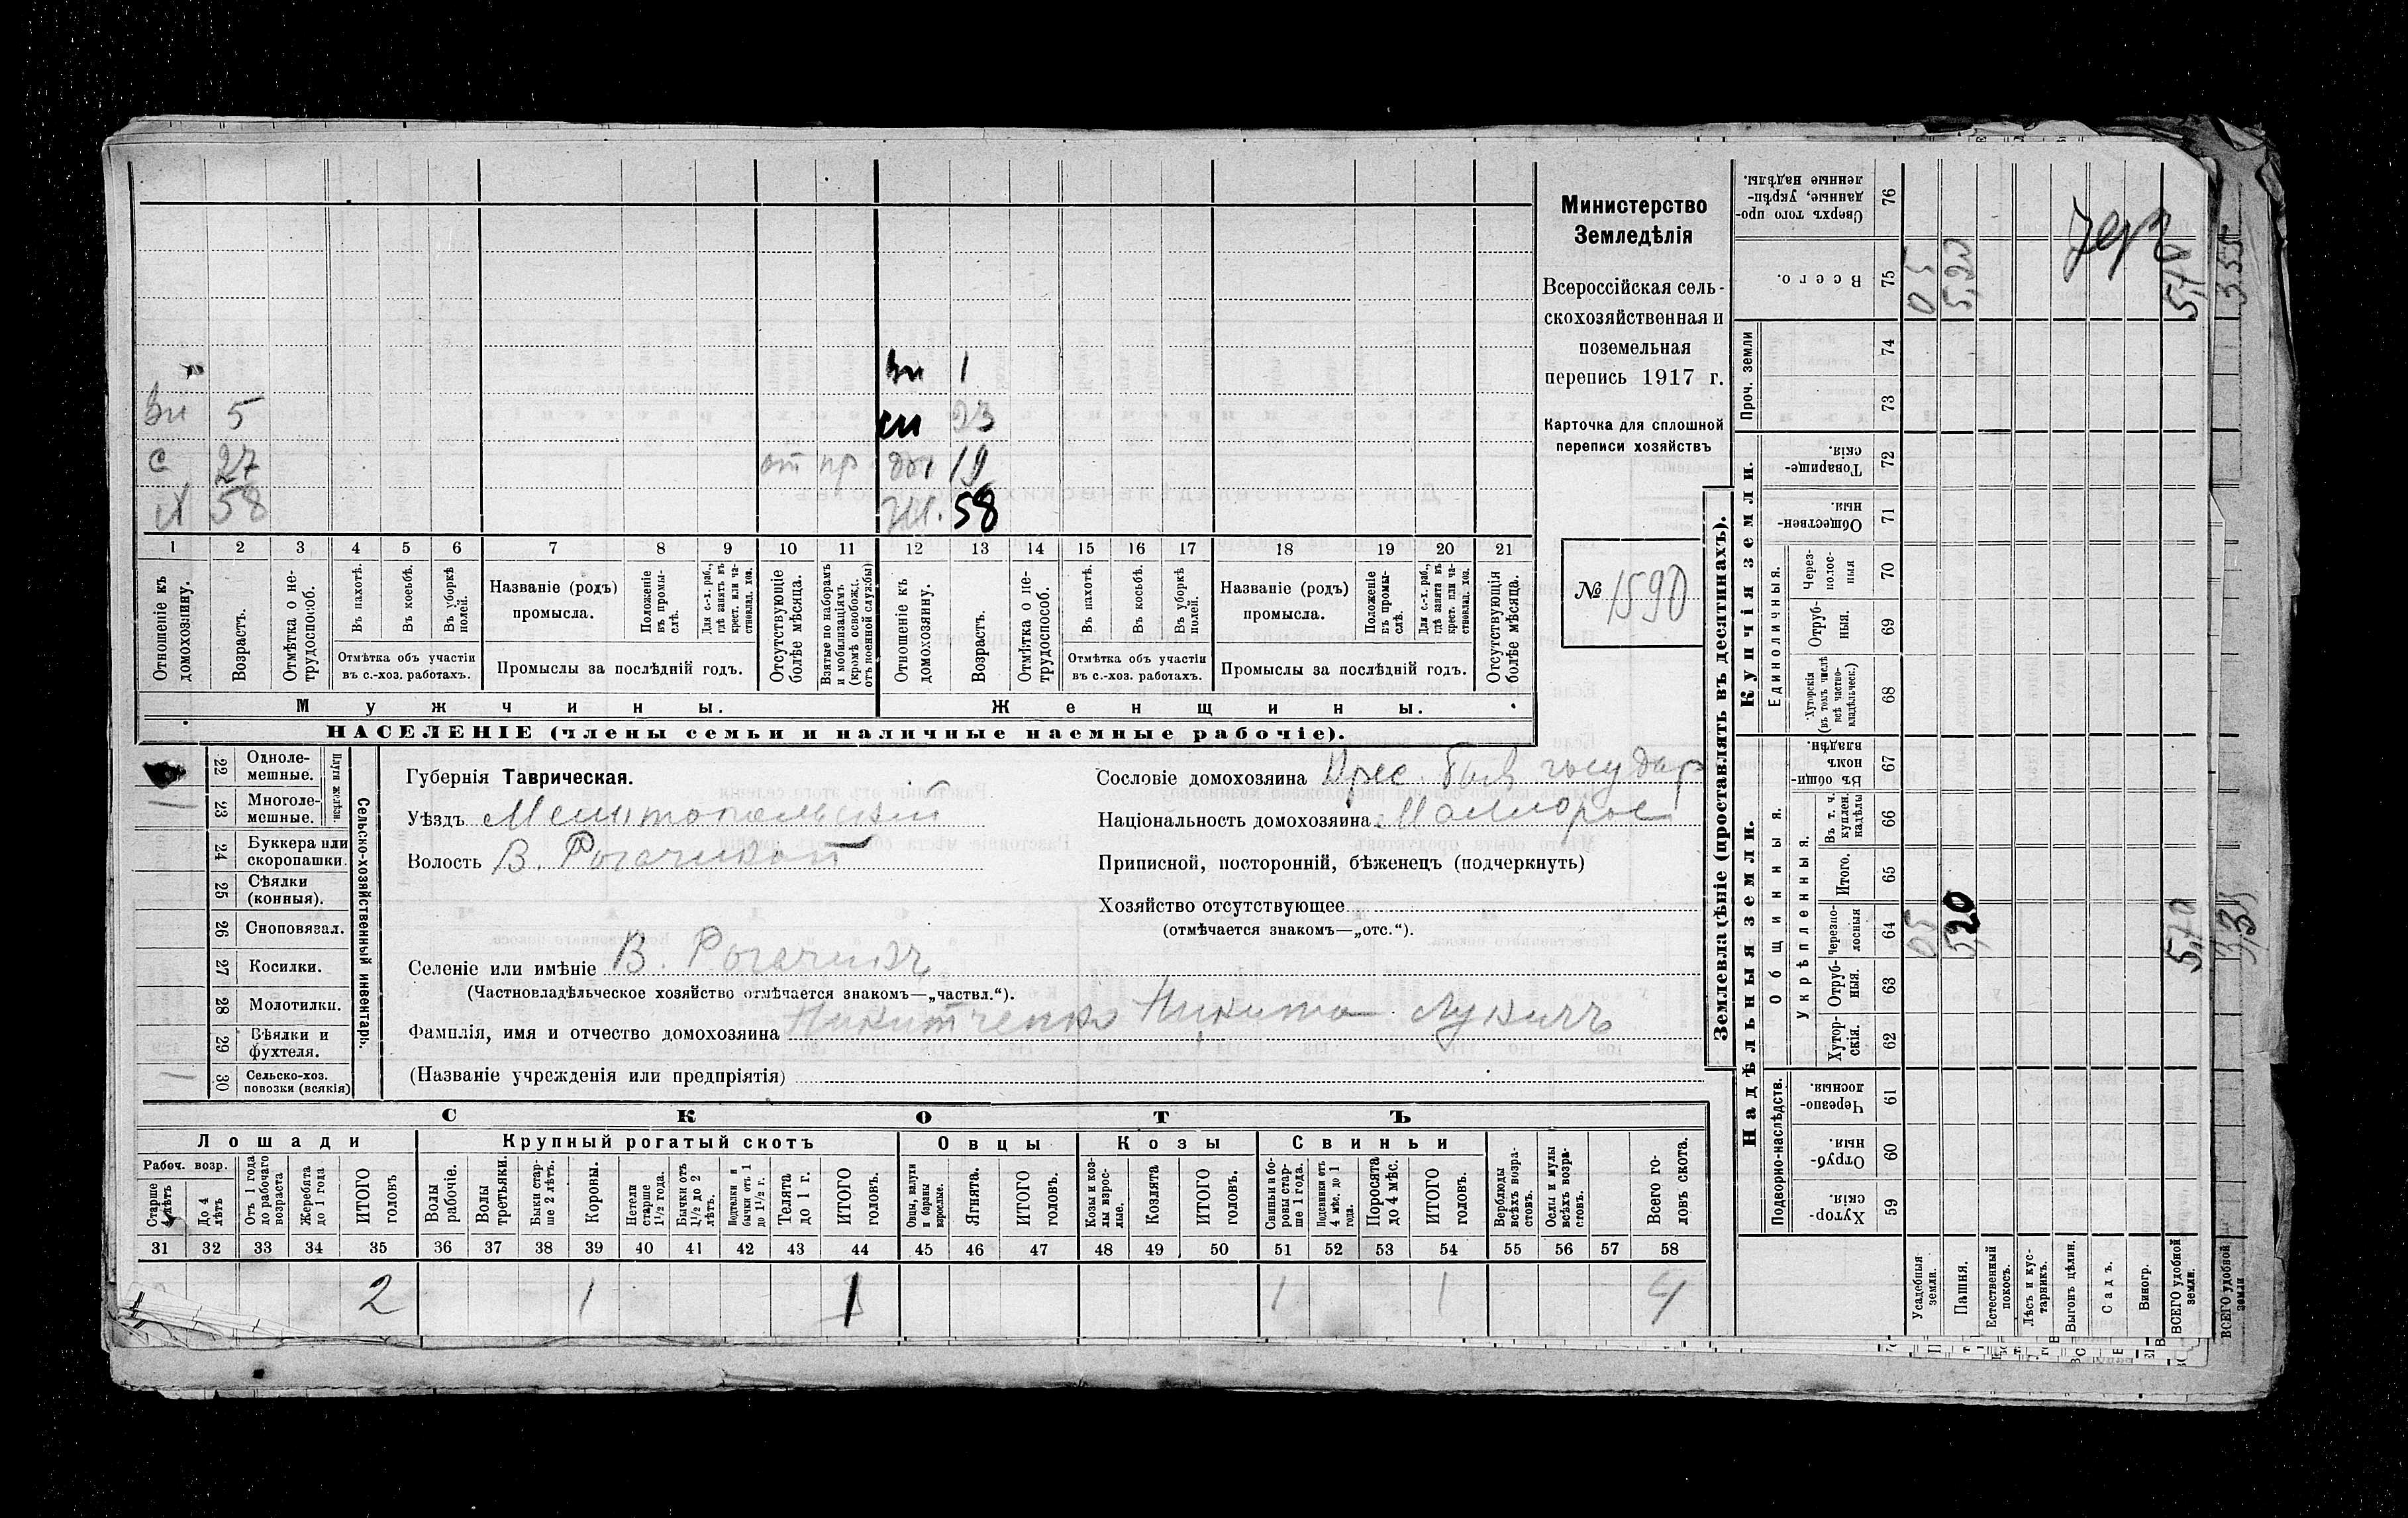 Министерство
Земледѣлія
Всероссійская сель-
скохозяйственная и
поземельная
перепись 1917 г.
Карточка для сплошной
переписи хозяйствъ
№ 1590
вн 1
вн 5 23
с 27 от пр 19
58 жн. 58
1 2 3 4 5 6 7 8 9 10 11 12 13 14 15 16 17 18 19 20 21
Отношеніе къ домохозяину.
Возрастъ.
Отмѣтка о не-трудоспособ.
Въ пахотѣ.
Въ косьбѣ.
Въ уборкѣ полей.
Отмѣтка объ участіи
въ с.-хоз. работахъ.
Названіе (родъ)
промысла.
Положеніе въ промы-слѣ.
Для с.-х. раб., гдѣ занятъ въ крест. или ча-ствовлад. хоз.
Промыслы за послѣдній годъ.
Отсутствующіе болѣе мѣсяца.
Взятые по наборамъ и мобилизаціямъ (кромѣ освобожд. отъ военной службы)
Отношеніе къ домохозяину.
Возрастъ.
Отмѣтка о не-трудоспособ.
Въ пахотѣ.
Въ косьбѣ.
Въ уборкѣ полей.
Отмѣтка объ участіи
въ с.-хоз. работахъ.
Названіе (родъ)
промысла.
Положеніе въ промы-слѣ.
Для с.-х. раб., гдѣ занята въ крест. или ча-ствовлад. хоз.
Промыслы за послѣдній годъ.
Отсутствующія болѣе мѣсяца.
Мужчины.
Женщины.
НАСЕЛЕНІЕ (члены семьи и наличные наемные рабочіе).
Сельско-хозяйственный инвентарь.
Плуги желѣзн.
22 Одноле-мешные.
23 Многоле-мешные.
24 Буккера или скоропашки.
25 Сѣялки (конныя).
26 Сноповязал.
27 Косилки.
28 Молотилки.
29 Вѣялки и фухтеля.
30 Сельско-хоз. повозки (всякія)
Губернія Таврическая.
Уѣздъ Мелитопольскій
Волость В. Рогачикской
Селеніе или имѣніе В. Рогачикъ
(Частновладѣльческое хозяйство отмѣчается знакомъ—„частвл.“).
Фамилія, имя и отчество домохозяина Никитченко Никита Лукичъ
(Названіе учрежденія или предпріятія)
Сословіе домохозяина Крес. быв государ
Національность домохозяина Малорос
Приписной, посторонній, бѣженецъ (подчеркнуть)
Хозяйство отсутствующее
(отмѣчается знакомъ—„отс.“).
СКОТЪ
Лошади
Крупный рогатый скотъ
Овцы
Козы
Свиньи
Рабоч. возр.
Старше 4 лѣтъ
До 4 лѣтъ
Отъ 1 года до рабочаго возраста
Жеребята до 1 года
ИТОГО головъ
Волы рабочіе.
Волы третьяки.
Быки стар-ше 2 лѣтъ.
Коровы.
Нетели старше 1½ года.
Бычки отъ 1½ до 2 лѣтъ.
Подтелки и бычки отъ 1 до 1½ г.
Телята до 1 г.
ИТОГО головъ.
Овцы, валухи и бараны взрослые.
Ягнята.
ИТОГО головъ.
Козы и коз-лы взрос-лые.
Козлята
ИТОГО головъ.
Свиньи и бо-ровы стар-ше 1 года.
Подсвинки отъ 4 мѣс. до 1 года.
Поросята до 4 мѣс.
ИТОГО головъ.
Верблюды всѣхъ возра-стовъ.
Ослы и мулы всѣхъ возра-стовъ.
Всего го-ловъ скота.
31 32 33 34 35 36 37 38 39 40 41 42 43 44 45 46 47 48 49 50 51 52 53 54 55 56 57 58
2 1 1 1 1 4
Землевладѣніе (проставлять въ десятинахъ).
Надѣльныя земли.
Купчія земли.
Проч. земли
Подворно-наслѣдств.
Общинныя.
Укрѣпленныя.
Единоличныя.
Хутор-скія. 59
Отруб-ныя. 60
Черезпо-лосныя. 61
Хутор-скія. 62
Отруб-ныя. 63
Черезпо-лосныя 64
Итого. 65
Въ т. ч. куплен. надѣлы 66
Въ общин-номъ владѣн. 67
Хуторскія (въ томъ числѣ всѣ частно-владѣльческ.) 68
Отруб-ныя. 69
Через-полос-ныя 70
Обществен-ныя. 71
Товарище-скія. 72
73
74
Всего. 75
Сверхъ того про-данные, укрѣп-ленные надѣлы. 76
Усадебныя земли. 05 05
Пашня. 5,20 5,20
Естественный покосъ.
Лѣсъ и кус-тарникъ.
Выгонъ цѣлин.
Садъ.
Виногр.
ВСЕГО удобной земли. 5,70 5,70
ВСЕГО удобной земли 3,35 3.55